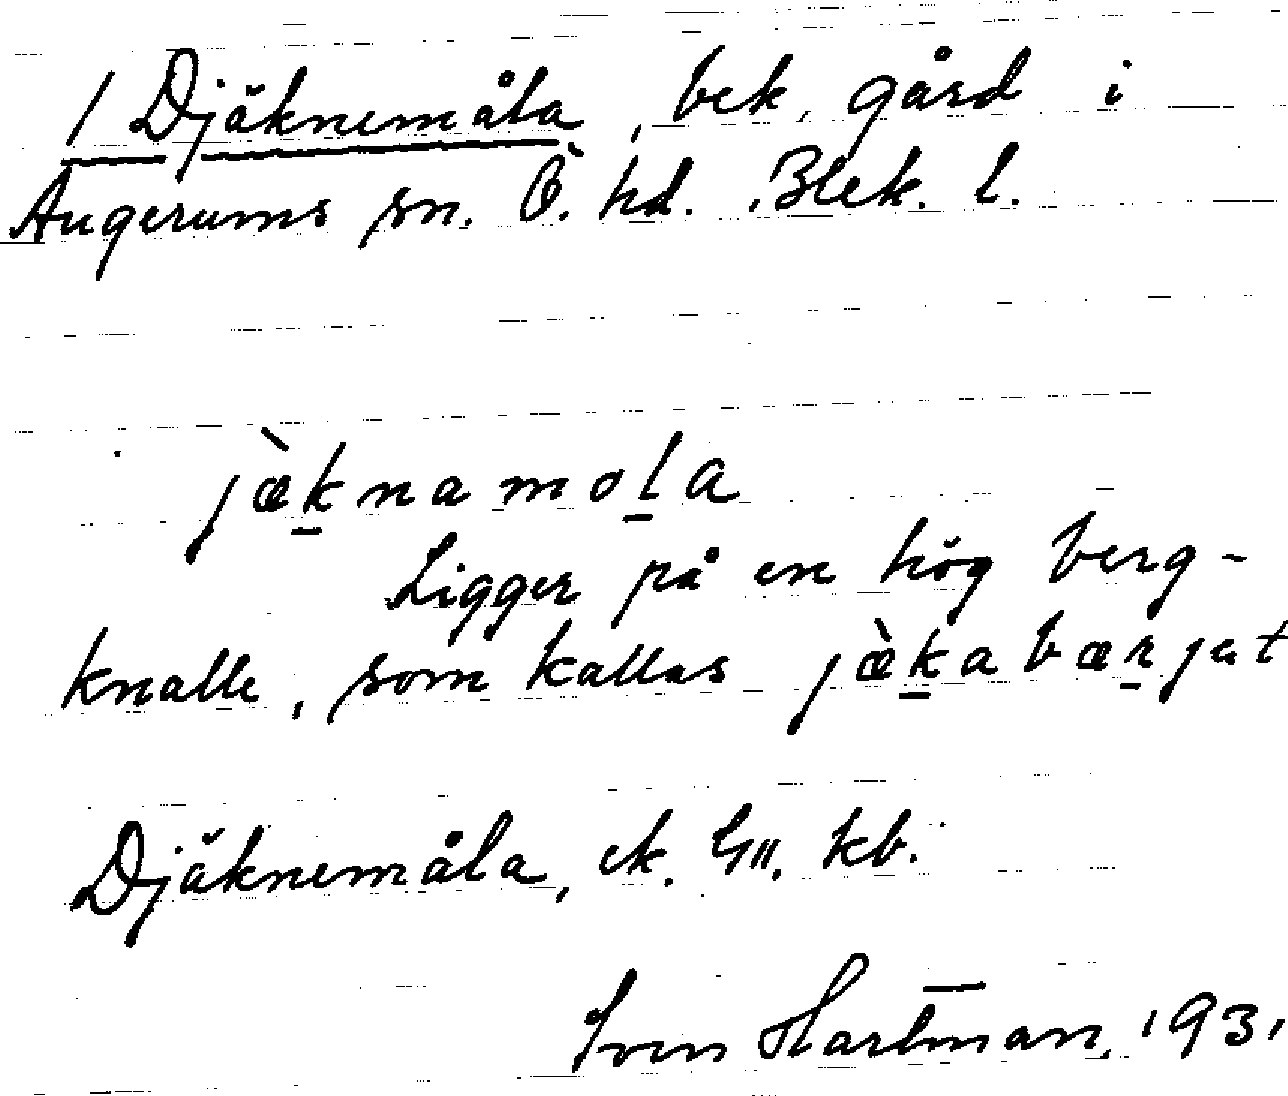 1 Djäknemåla, bek. gård i
Augerums sn. Ö. hd. Blek. l.
jæ̀k̲namol̲a
Ligger på en hög berg-
knalle, som kallas jæ̀k̲abær̲jet
Djäknemåla, ek. kb.
Sven Hartman, 1931